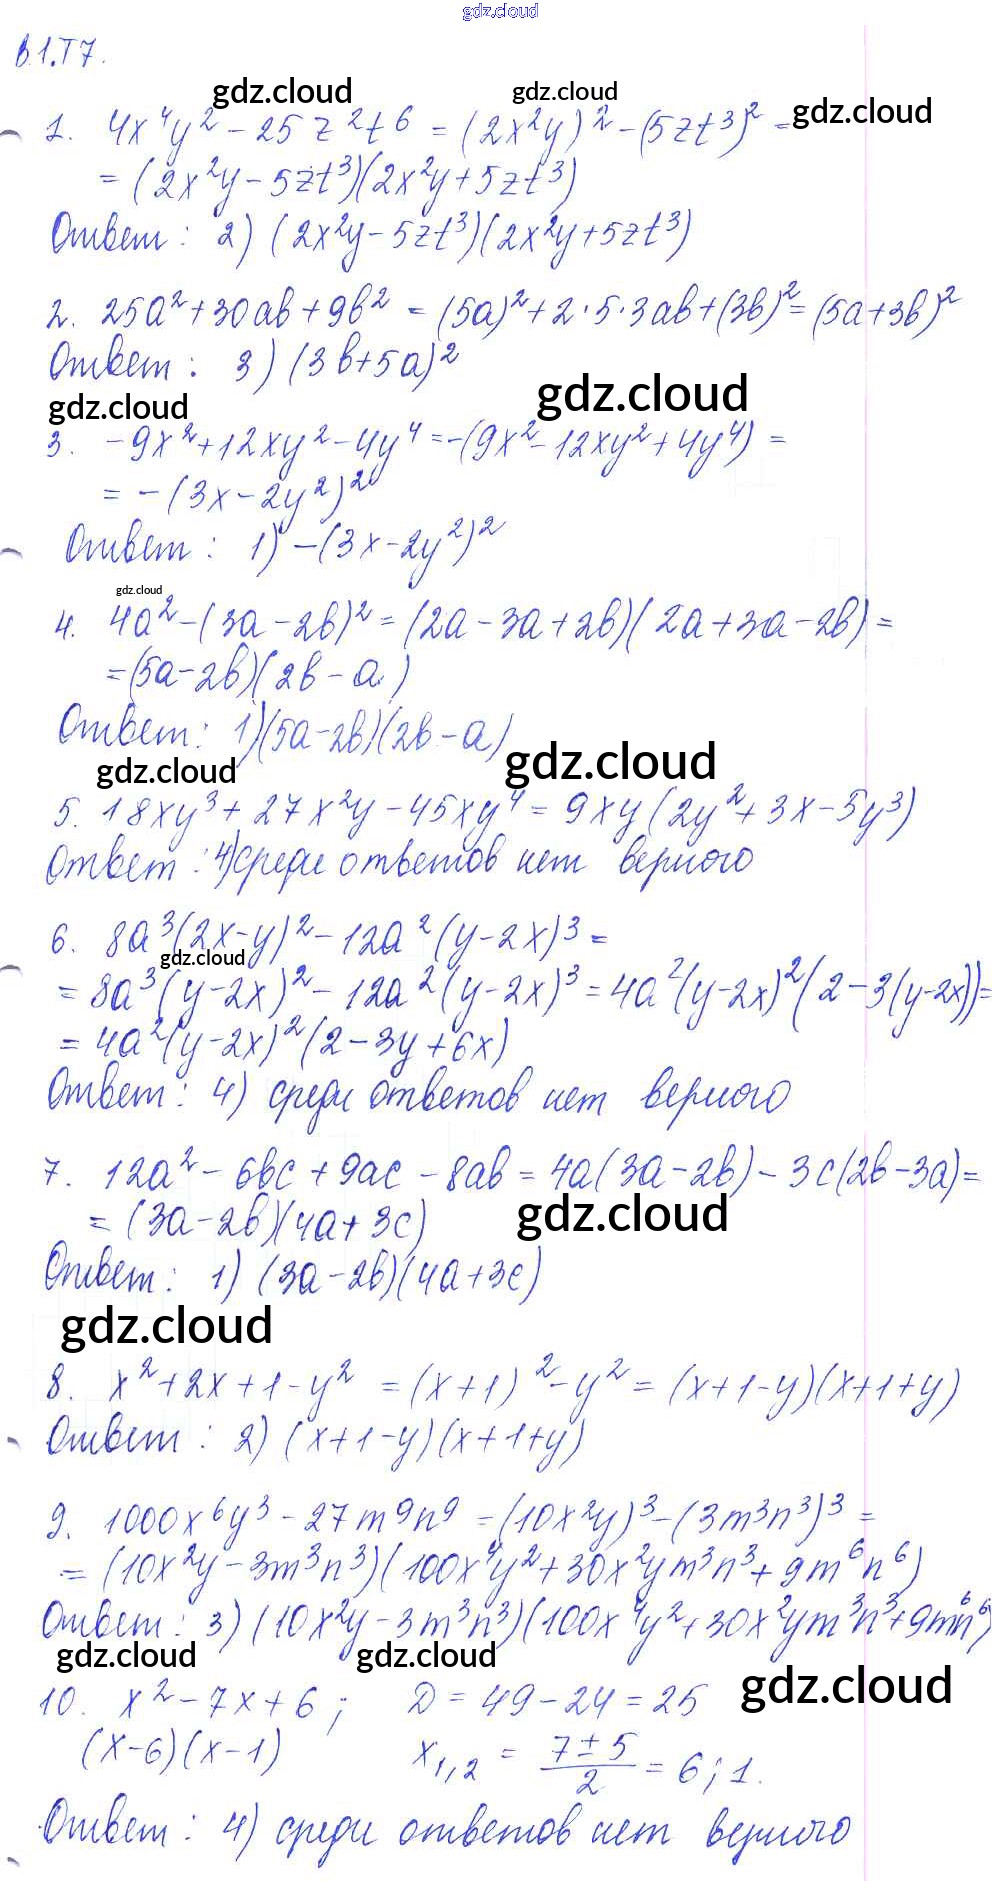 gdz.cloud
В.1.Т7.
gdz.cloud gdz.cloud gdz.cloud
1. 4x⁴y² - 25z²t⁶ = (2x²y)² - (5zt³)² =
= (2x²y - 5zt³)(2x²y + 5zt³)
Ответ: 2) (2x²y - 5zt³)(2x²y + 5zt³)
2. 25a² + 30ab + 9b² = (5a)² + 2·5·3ab + (3b)² = (5a + 3b)²
Ответ: 3) (3b + 5a)²
gdz.cloud gdz.cloud
3. -9x² + 12xy² - 4y⁴ = -(9x² - 12xy² + 4y⁴) =
= -(3x - 2y²)²
Ответ: 1) -(3x - 2y²)²
gdz.cloud
4. 4a² - (3a - 2b)² = (2a - 3a + 2b)(2a + 3a - 2b) =
= (5a - 2b)(2b - a)
Ответ: 1) (5a - 2b)(2b - a)
gdz.cloud gdz.cloud
5. 18xy³ + 27x²y - 45xy⁴ = 9xy(2y² + 3x - 5y³)
Ответ: 4) среди ответов нет верного
6. 8a³(2x - y)² - 12a²(y - 2x)³ =
gdz.cloud
= 8a³(y - 2x)² - 12a²(y - 2x)³ = 4a²(y - 2x)²(2 - 3(y - 2x)) =
= 4a²(y - 2x)²(2 - 3y + 6x)
Ответ: 4) среди ответов нет верного
7. 12a² - 6bc + 9ac - 8ab = 4a(3a - 2b) - 3c(2b - 3a) =
= (3a - 2b)(4a + 3c)
gdz.cloud
Ответ: 1) (3a - 2b)(4a + 3c)
gdz.cloud
8. x² + 2x + 1 - y² = (x + 1)² - y² = (x + 1 - y)(x + 1 + y)
Ответ: 2) (x + 1 - y)(x + 1 + y)
9. 1000x⁶y³ - 27m⁹n⁹ = (10x²y)³ - (3m³n³)³ =
= (10x²y - 3m³n³)(100x⁴y² + 30x²ym³n³ + 9m⁶n⁶)
Ответ: 3) (10x²y - 3m³n³)(100x⁴y² + 30x²ym³n³ + 9m⁶n⁶)
gdz.cloud gdz.cloud gdz.cloud
10. x² - 7x + 6; D = 49 - 24 = 25
(x - 6)(x - 1) x₁,₂ = (7 ± 5)/2 = 6; 1.
Ответ: 4) среди ответов нет верного